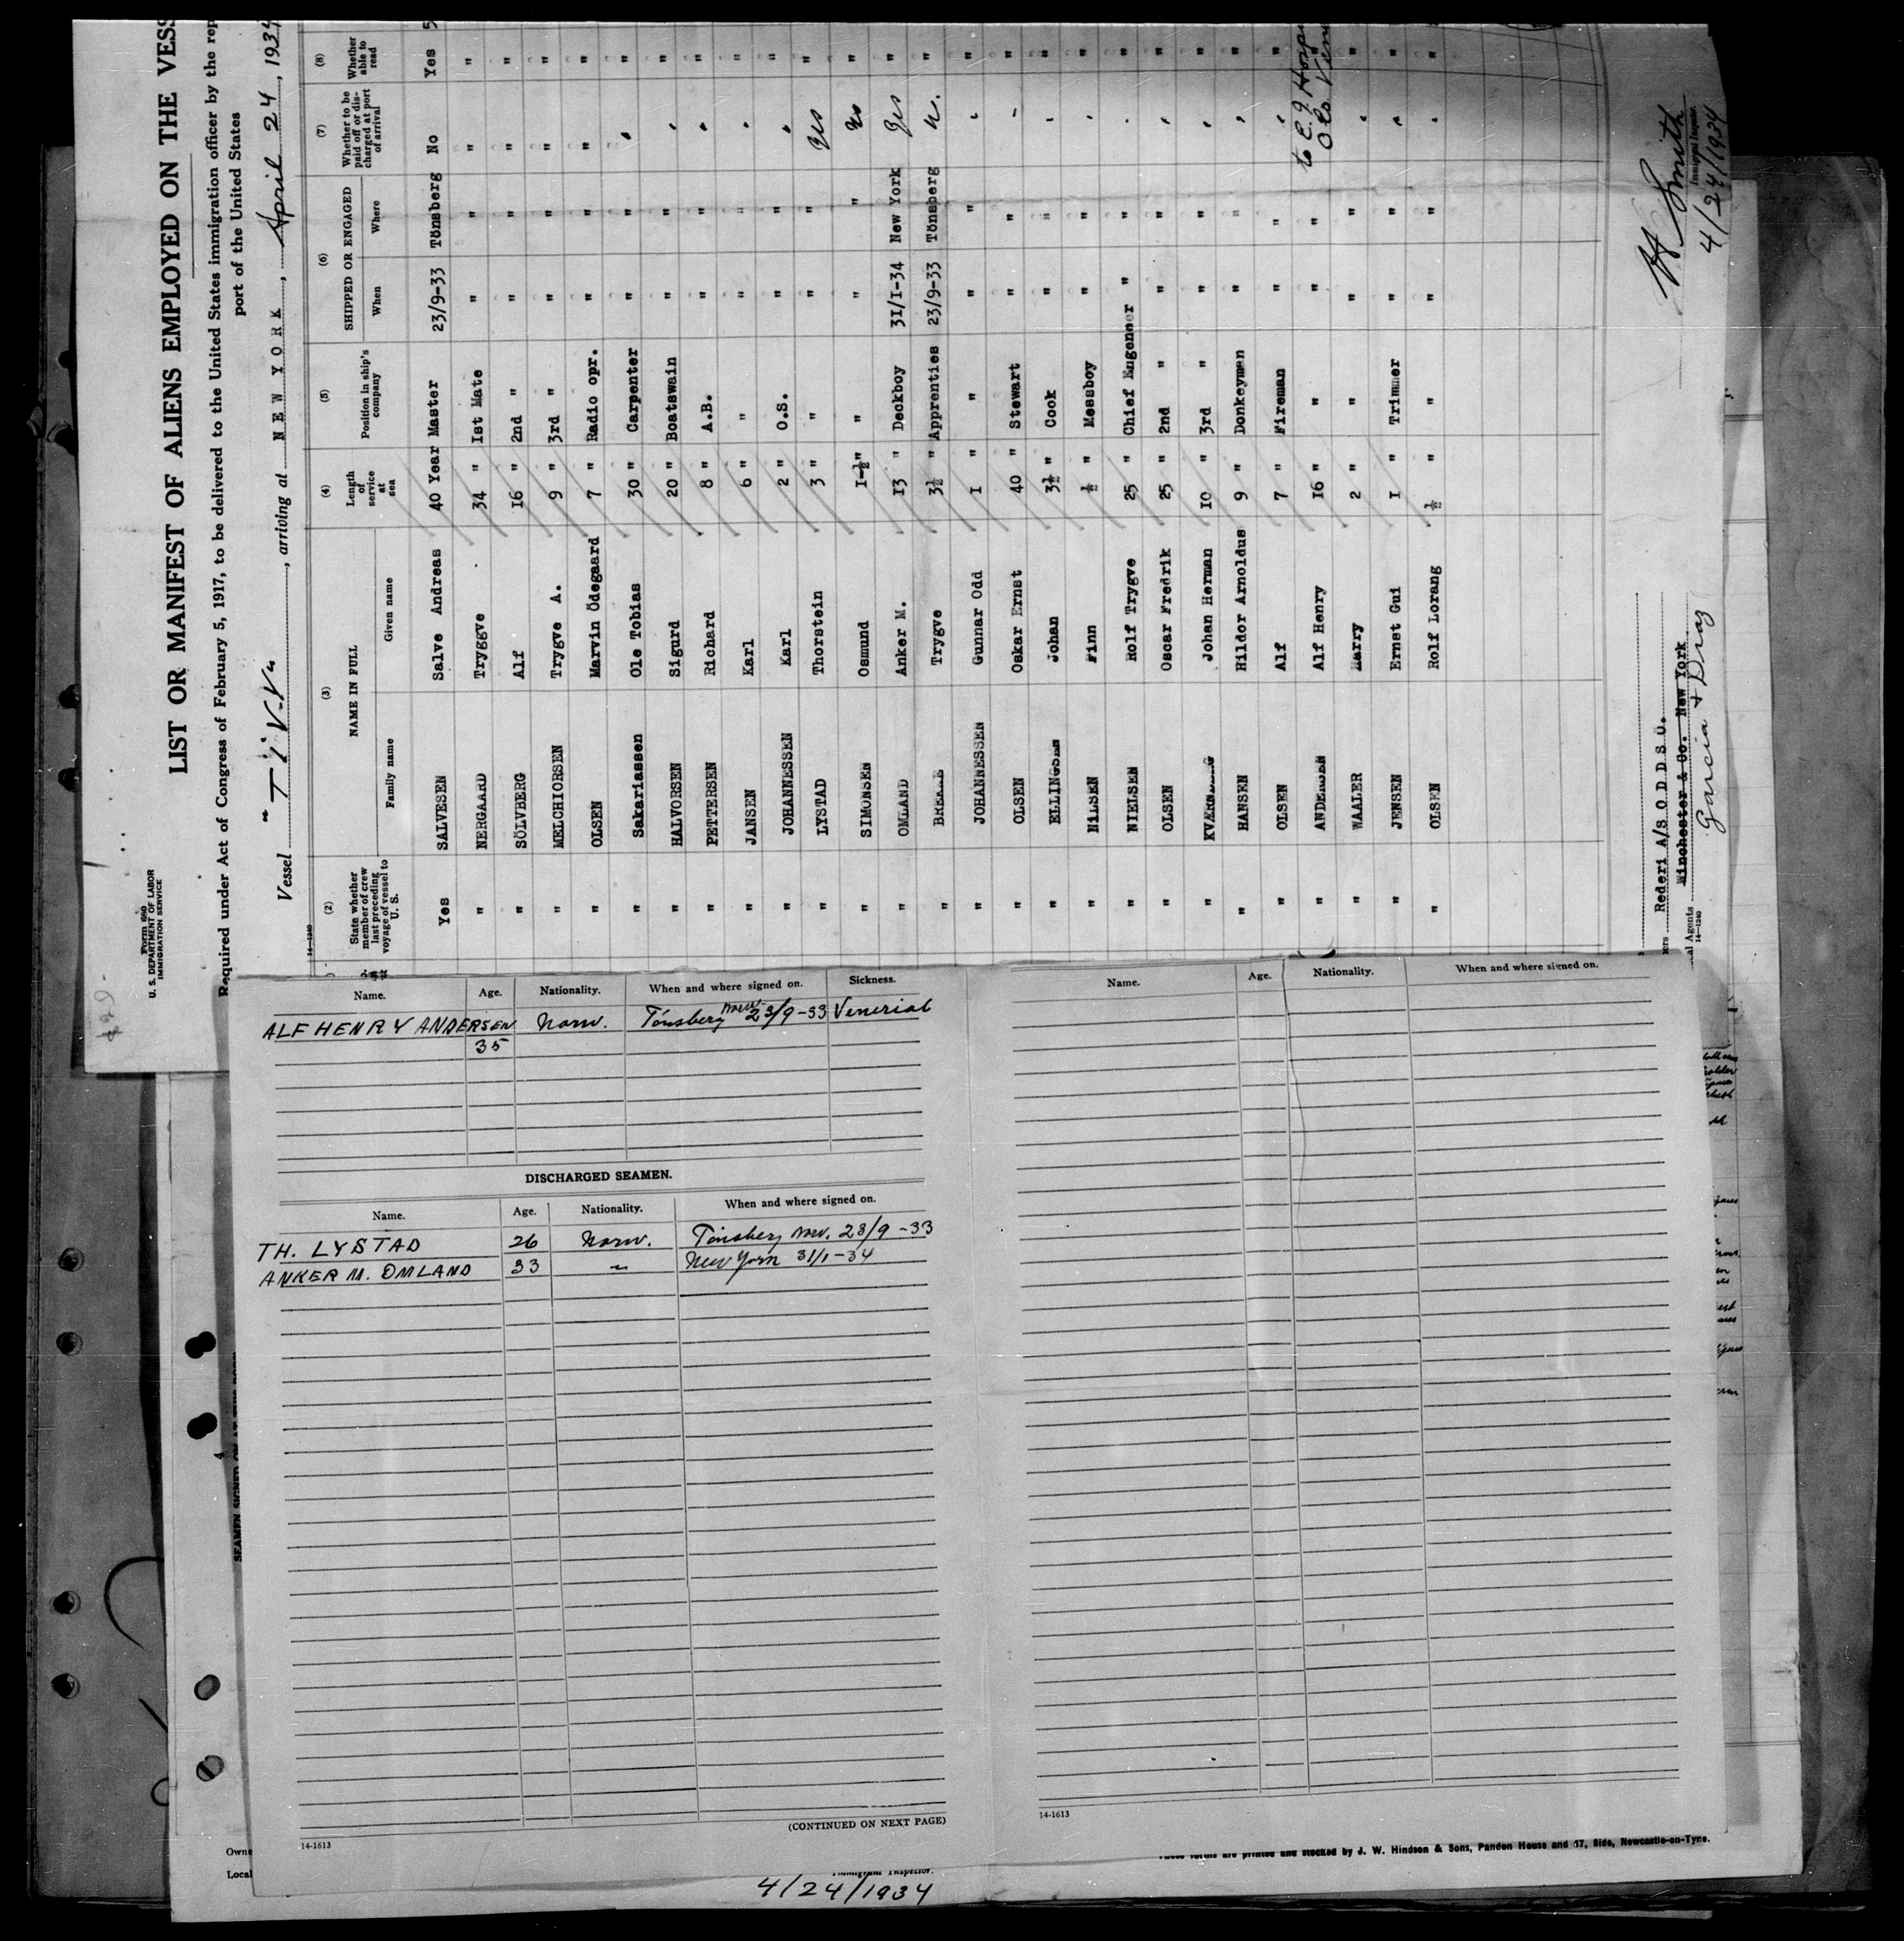 Form 680
U. S. DEPARTMENT OF LABOR
IMMIGRATION SERVICE
LIST OR MANIFEST OF ALIENS EMPLOYED ON THE VESS
Required under Act of Congress of February 5, 1917, to be delivered to the United States immigration officer by the rep
port of the United States
Vessel "TIVV", arriving at NEW YORK, April 24, 1934
14-1240
(2) (3) (4) (5) (6) (7) (8)
State whether member of crew last preceding voyage of vessel to U. S. NAME IN FULL Length of service at sea Position in ship's company SHIPPED OR ENGAGED Whether to be paid off or discharged at port of arrival Whether able to read
Family name Given name When Where
Yes SALVESEN Salve Andreas 40 Year Master 23/9-33 Tönsberg No Yes 5
" NERGAARD Tryggve 34 " Ist Mate " " " "
" SÖLVBERG Alf 16 " 2nd " " " " "
" MELCHIORSEN Trygve A. 9 " 3rd " " " " "
" OLSEN Marvin Ödegaard 7 " Radio opr. " " " "
" Sakariassen Ole Tobias 30 " Carpenter " " " "
" HALVORSEN Sigurd 20 " Boatswain " " " "
" PETTERSEN Richard 8 " A.B. " " " "
" JANSEN Karl 6 " " " " " "
" JOHANNESSEN Karl 2 " O.S. " " " "
" LYSTAD Thorstein 3 " " " " Yes "
" SIMONSEN Osmund I-½ " " " " "
" OMLAND Anker M. I3 " Deckboy 3I/I-34 New York Yes "
" Trygve 3½ " Apprenties 23/9-33 Tönsberg "
" JOHANNESSEN Gunnar Odd I " " " " " "
" OLSEN Oskar Ernst 40 " Stewart " " " "
" ELLINGSEN Johan 3½ " Cook " " " "
" NilSEN Finn ½ " Messboy " " " "
" NIELSEN Rolf Trygve 25 " Chief Eugeneer " " " "
" OLSEN Oscar Fredrik 25 " 2nd " " " " "
" Johan Herman 10 " 3rd " " " " "
" HANSEN Hildor Arnoldus 9 " Donkeyman " " " "
" OLSEN Alf 7 " Fireman " " " "
" ANDERSEN Alf Henry I6 " " " " to E. I. Hosp
" WAALER Harry 2 " " " " " "
" JENSEN Ernst Gui I " Trimmer " " " "
" OLSEN Rolf Lorang ½ " " " " " "
Rederi A/S O D D S Ö.
Winchester & Co. New York
al Agents Garcia & Diaz
14-1240
Smith
Immigrant Inspector.
4/24/1934
Name. Age. Nationality. When and where signed on. Sickness.
ALF HENRY ANDERSEN Norw. Tönsberg Norw. 23/9-33 Venerial
35
DISCHARGED SEAMEN.
Name. Age. Nationality. When and where signed on.
TH. LYSTAD 26 Norw. Tönsberg Norw. 23/9 -33
ANKER M. OMLAND 33 " New York 31/1-34
(CONTINUED ON NEXT PAGE)
14-1613
Name. Age. Nationality. When and where signed on.
14-1613
Owne
Local
Immigrant Inspector.
4/24/1934
These forms are printed and stocked by J. W. Hindson & Sons, Pandon House and 17, Side, Newcastle-on-Tyne.